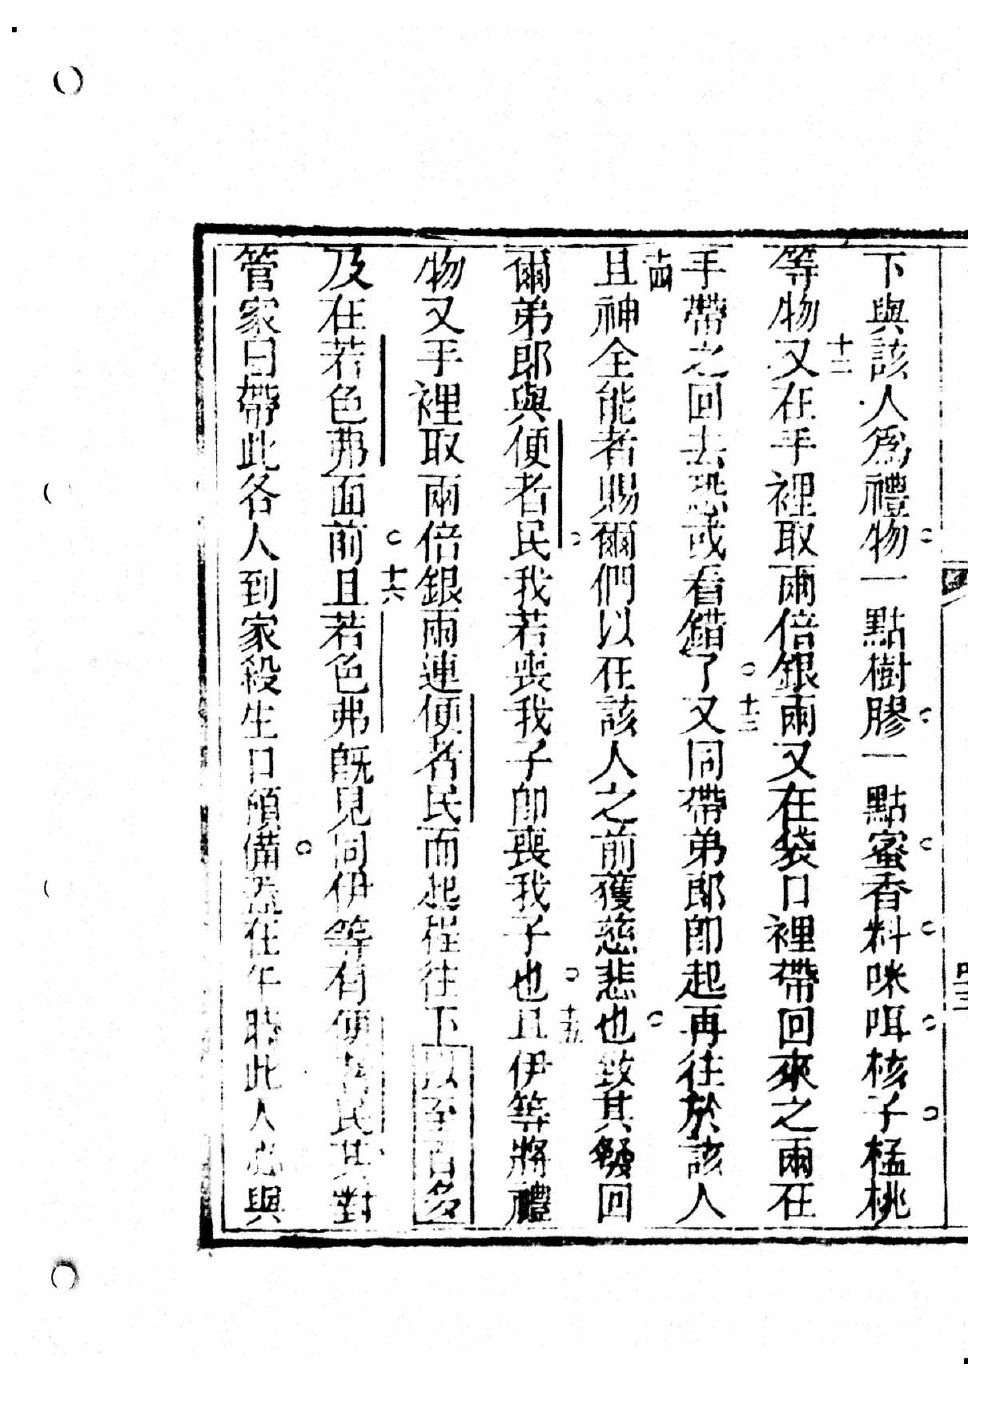 下與該人爲禮物一點樹膠一點蜜香料咪咡核子榅桃
等物十二又在手裡取兩倍銀兩又在袋口裡帶回來之兩在
手帶之回去恐或看錯了十三又同帶弟郎卽起再往於該人
十四且神全能者賜爾們以在該人之前獲慈悲也致其發回
爾弟郎與便者民我若喪我子卽喪我子也十五且伊等將禮
物又手裡取兩倍銀兩連便者民而起程往下以至百多
及在若色弗面前十六且若色弗旣見同伊等有便者民其對
管家曰帶此各人到家殺生口預備蓋在午時此人必與